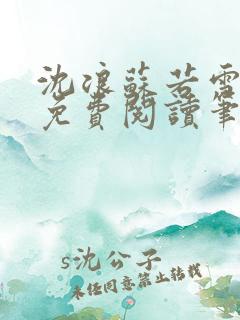 沈浪蘇若雪
免費閱讀筆
s沈公子
未经同意禁止转载